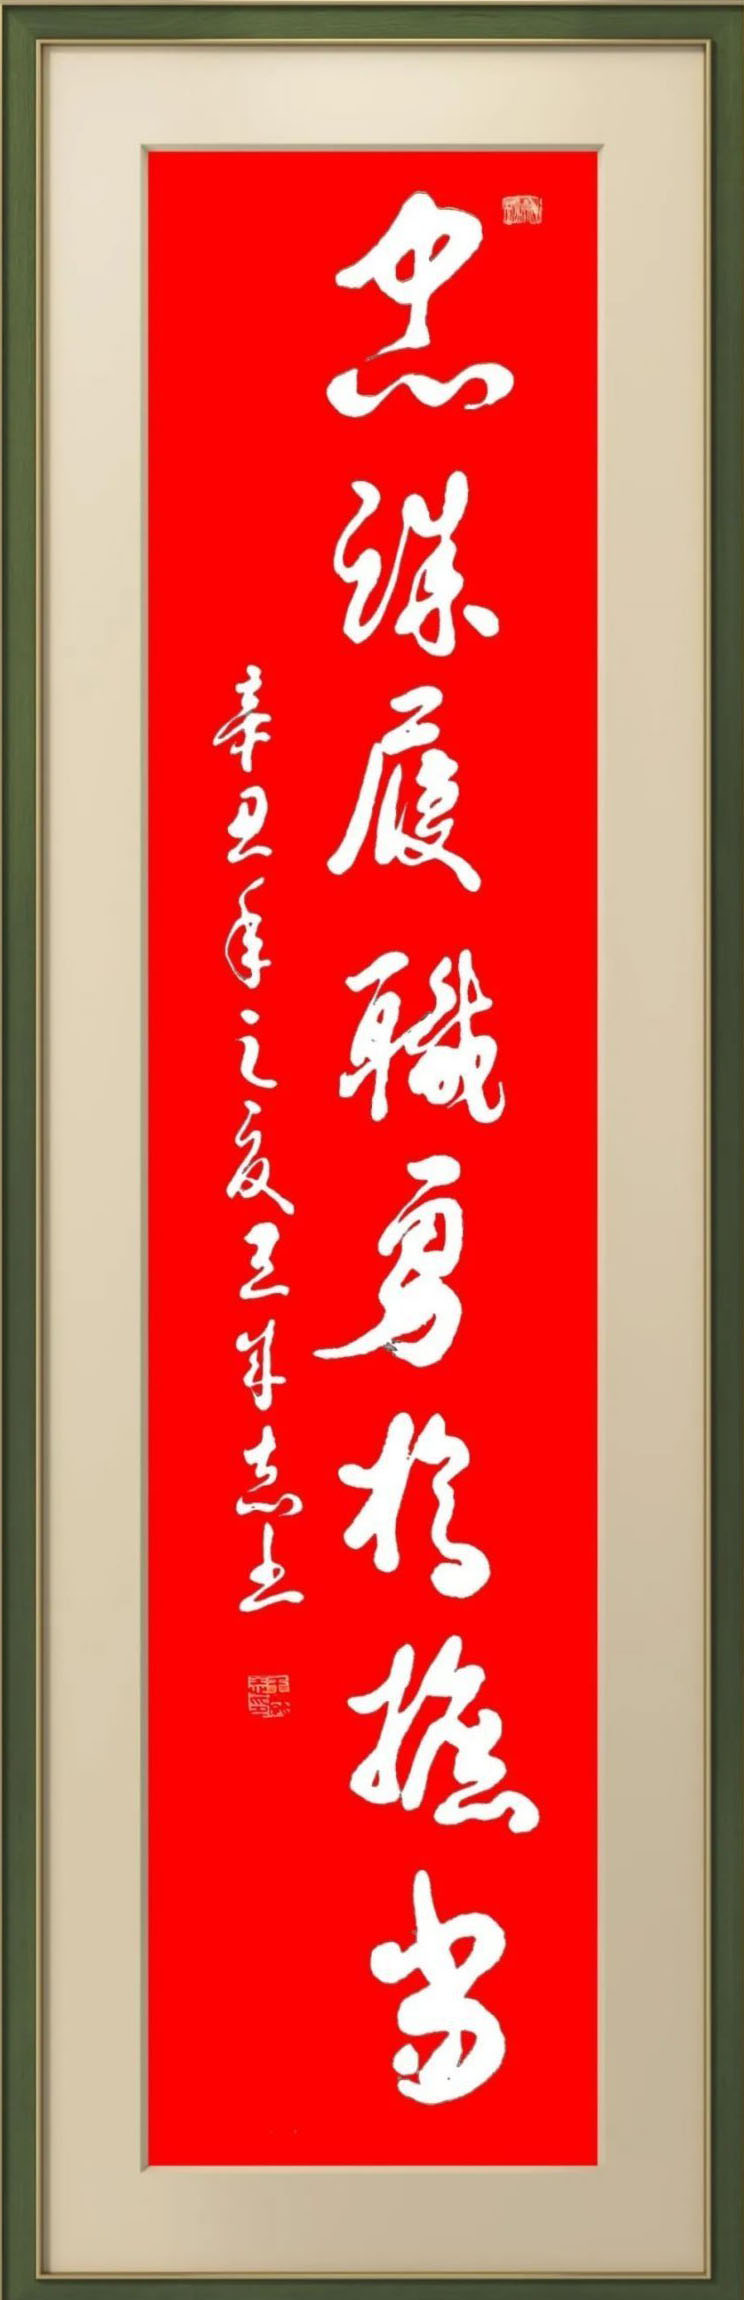 忠誠履職勇於擔當
辛丑年之夏王志